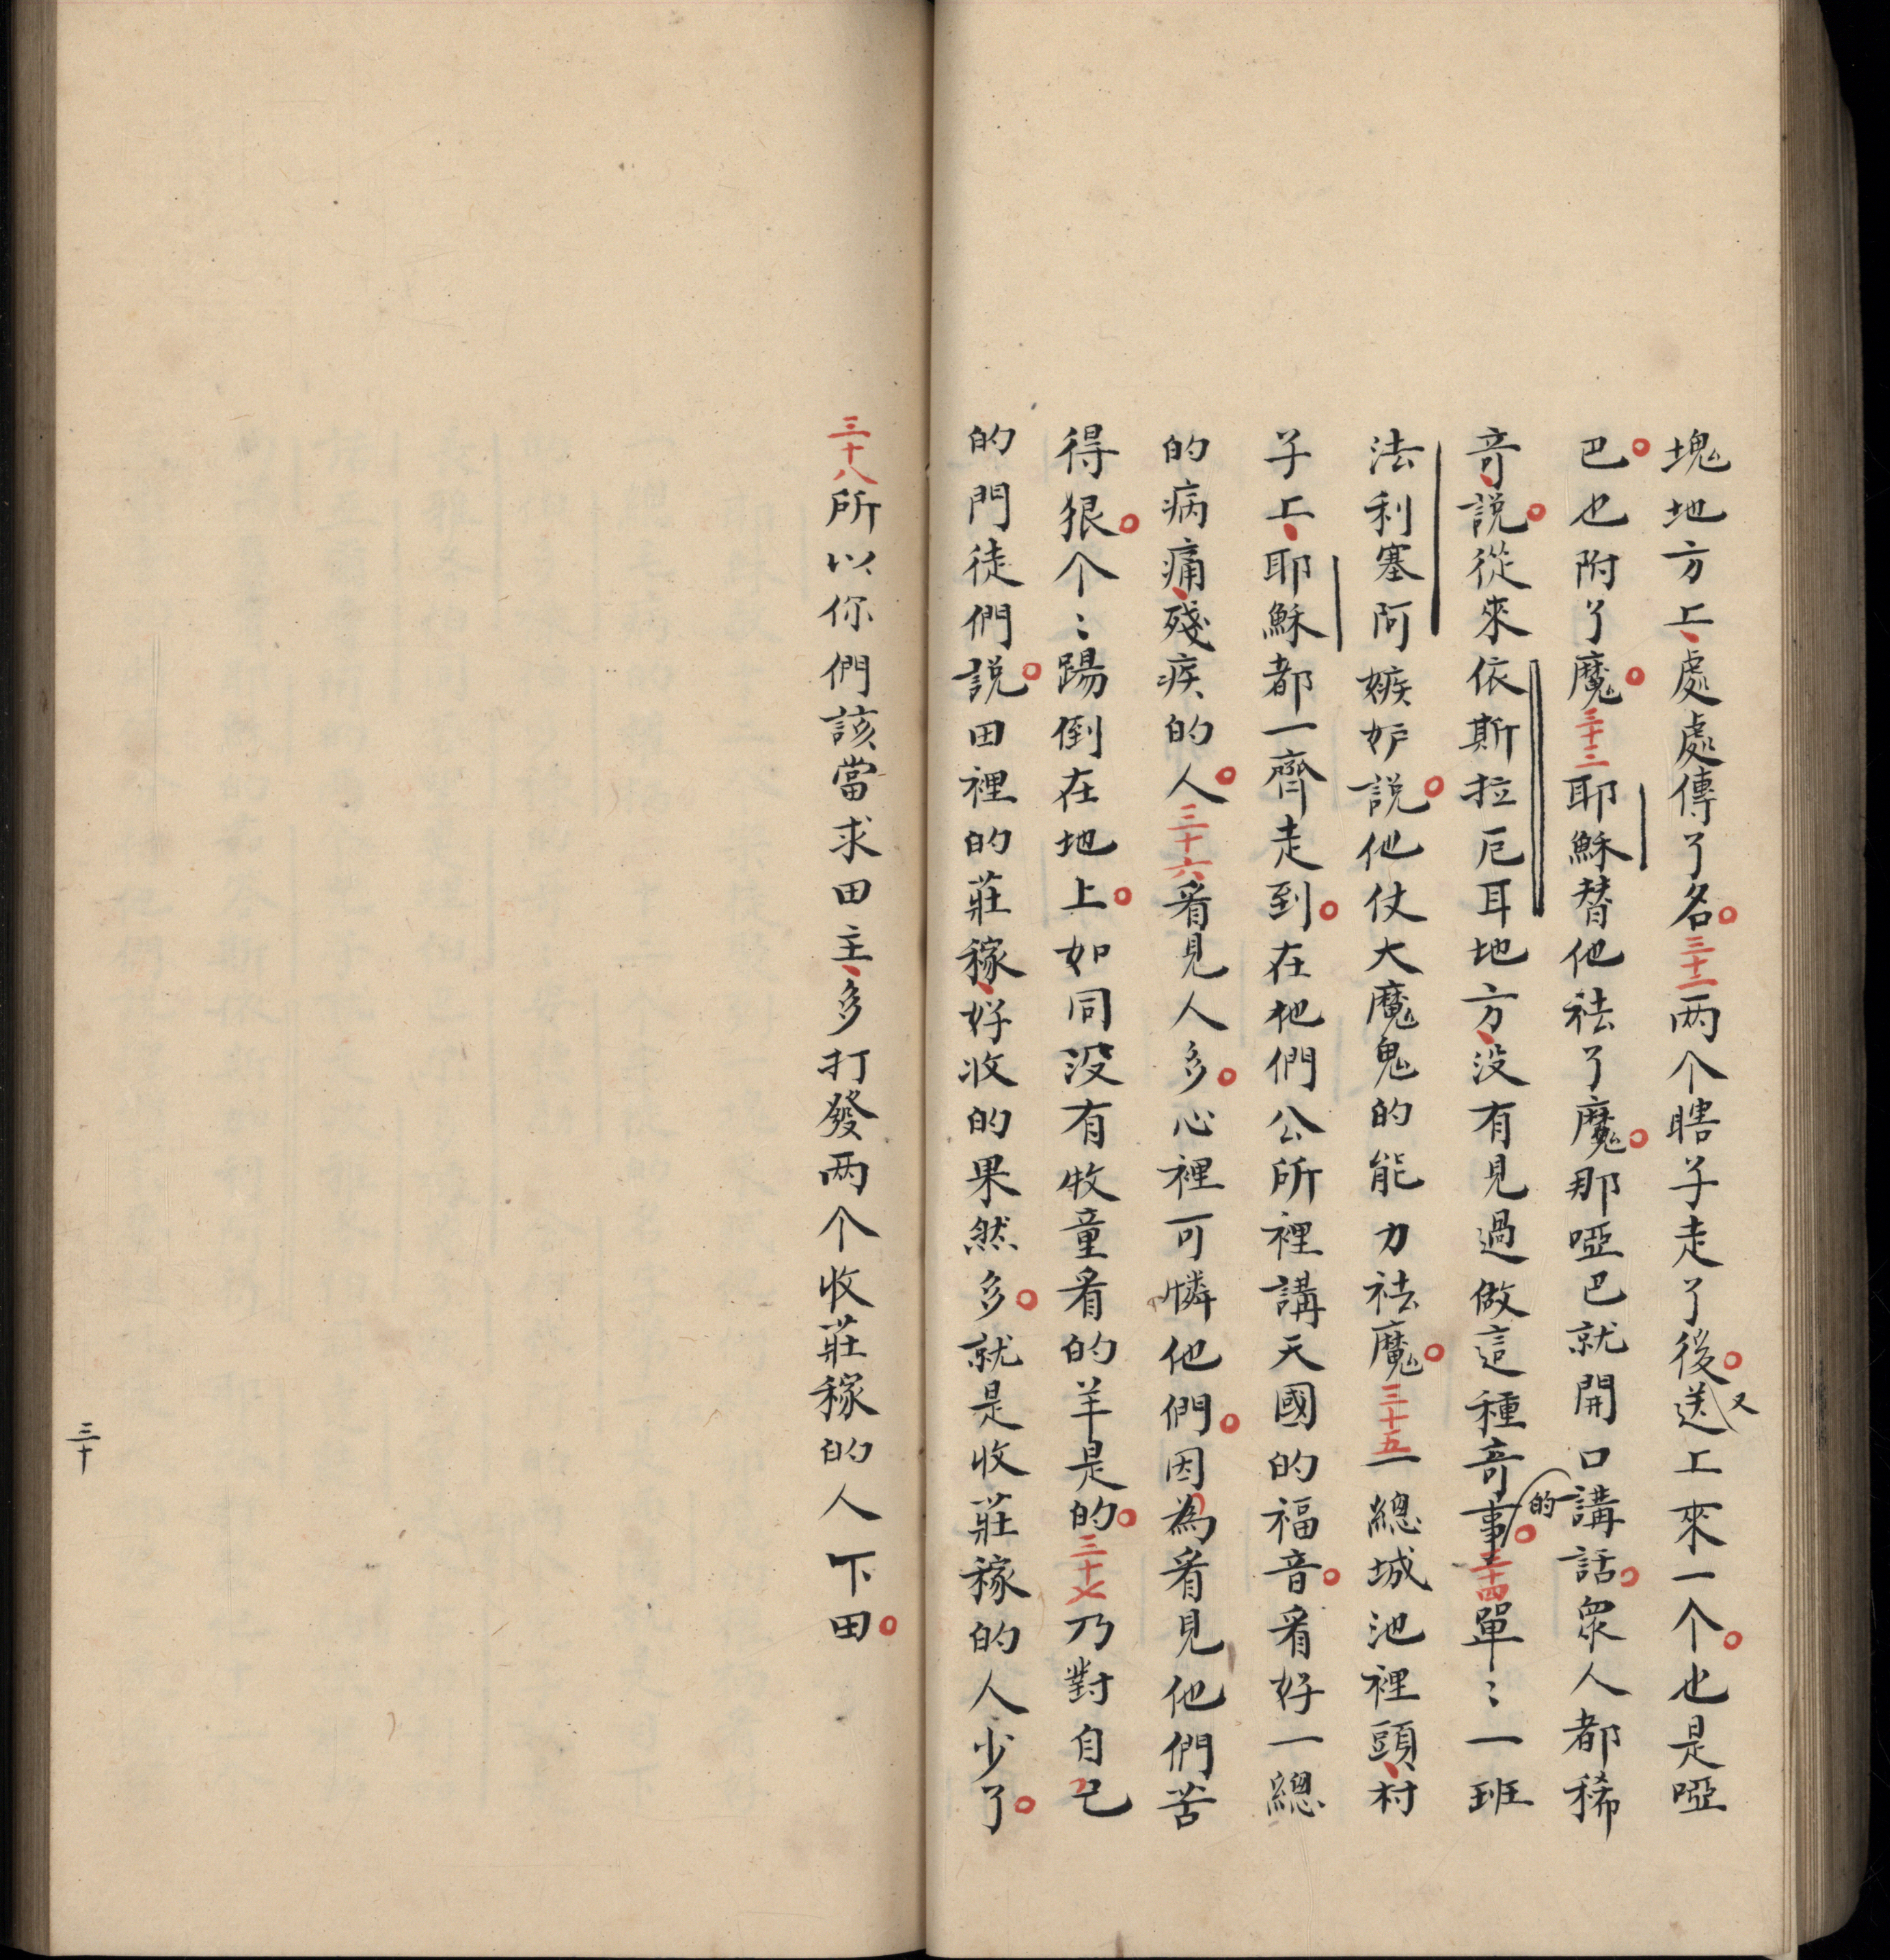 塊地方上、處處傳了名。三十二两个瞎子走了後。又送上來一个。也是啞
巴。也附了魔。三十三耶穌替他祛了魔。那啞巴就開口講話。眾人都稀
竒、說。從來依斯拉厄耳地方、没有見過做這種竒事的。三十四單〻一班
法利塞阿嫉妒說。他仗大魔鬼的能力祛魔。三十五一總城池裡頭、村
子上、耶穌都一齊走到。在他們公所裡講天國的福音。看好一總
的病痛、殘疾的人。三十六看見人多。心裡可憐他們。因為看見他們苦
得狠。个〻踢倒在地上。如同没有牧童看的羊是的。三十七乃對自己
的門徒們說。田裡的莊稼、好收的果然多。就是收莊稼的人少了。
三十八所以你們該當求田主、多打發两个收莊稼的人下田。
三十